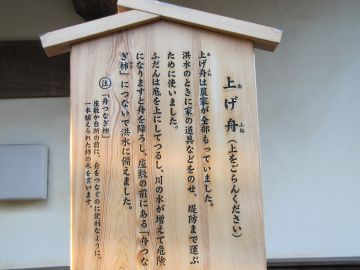 上げ舟(上をごらんください)
上げ舟は農家が全部もっていました。
洪水のときに家の道具などをのせ、堤防まで運ぶ
ために使いました。
ふだんは底を上にしてつるし、川の水が増えて危険
になりますと舟を降ろし、座敷の前にある「舟つな
ぎ柿」につないで洪水に備えました。
㊟「舟つなぎ柿」
座敷か台所の前に、舟をつなぐのに便利なように、
一本植えられた柿の木を言います。